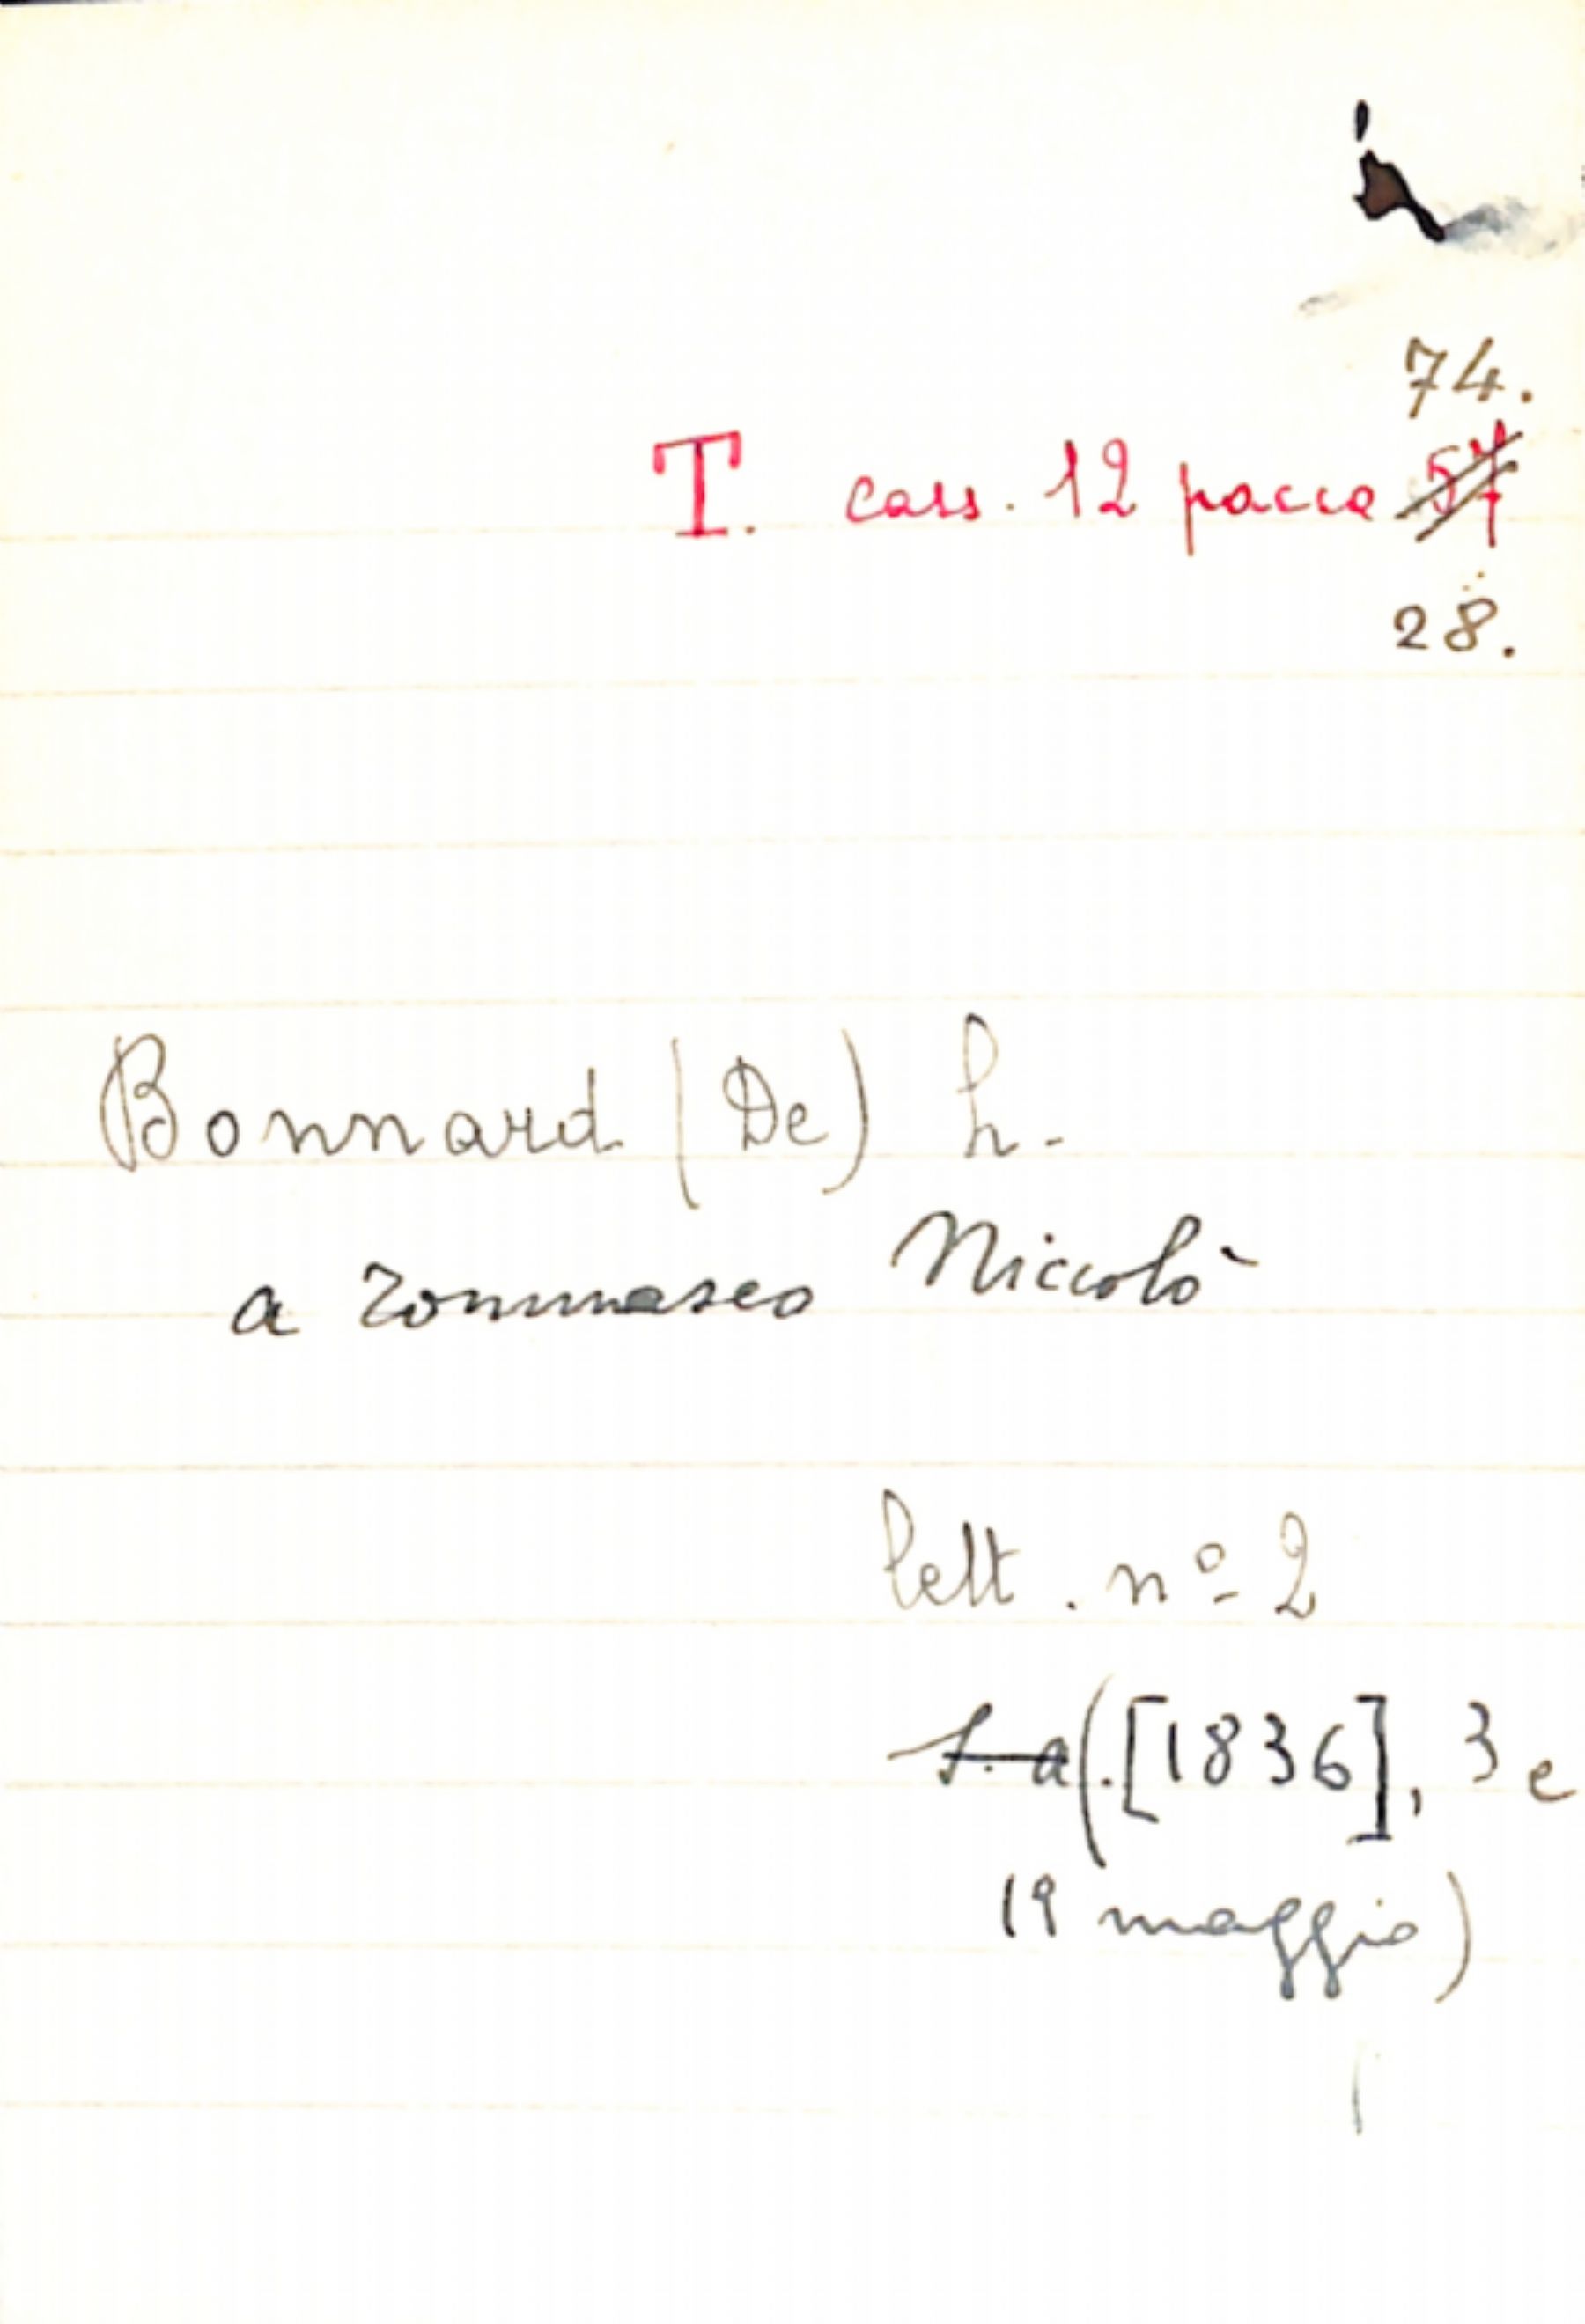 74.
T. cass. 12 pacco 57
28.
Bonnard (De) h.
a Tommaseo Niccolò
lett. nº 2
s. a (.[1836], 3 e
19 maggio)